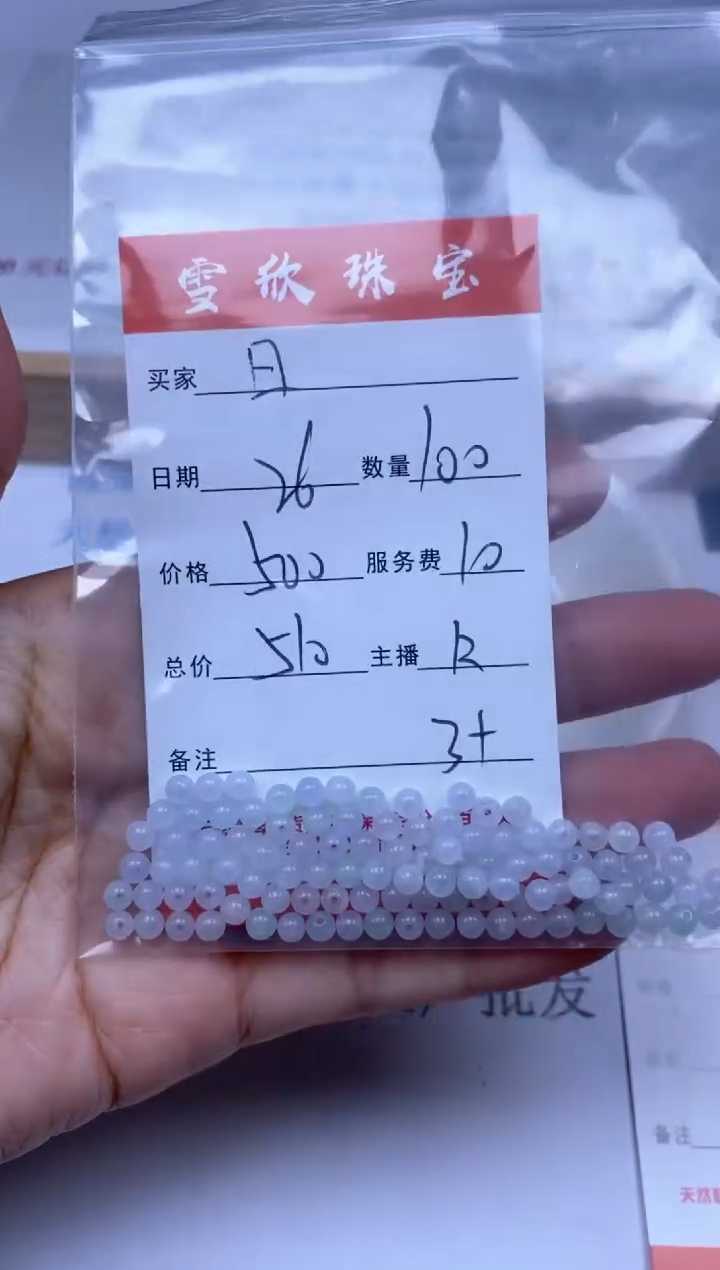 雪欣珠宝
买家 日
日期 26 数量 100
价格 500 服务费 10
总价 510 主播 R
备注 3+
批发
备注
天然